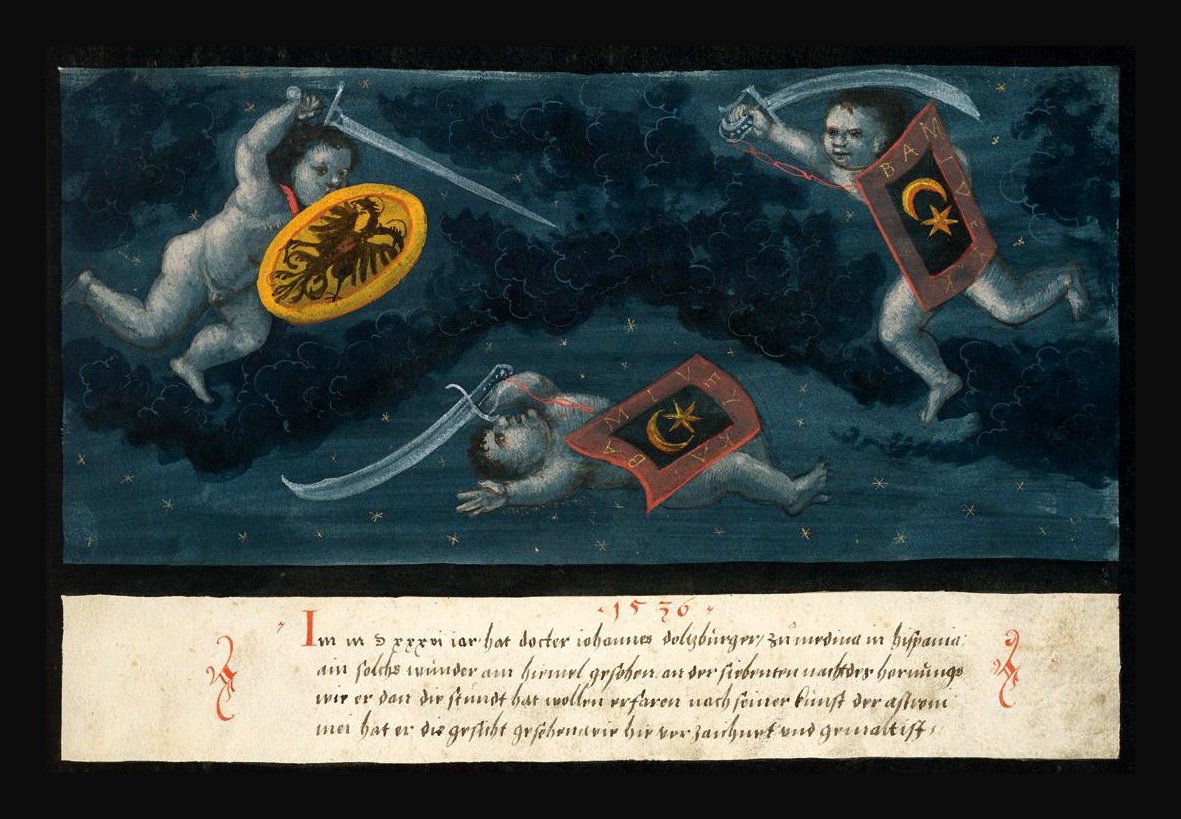 BAMIVE
BAMIVEYKA
·1536·
Im m d xxxvi iar hat docter iohannes dolzburger/ zu medina in hispania
ain solchs wunder am hiemel gesehen an der siebenten nacht des hornungs
wie er dan die stundt hat wollen erfaren nach seiner kunst der astroni
mei hat er die gesicht gesehen wie hie verzaichnet und gemalt ist